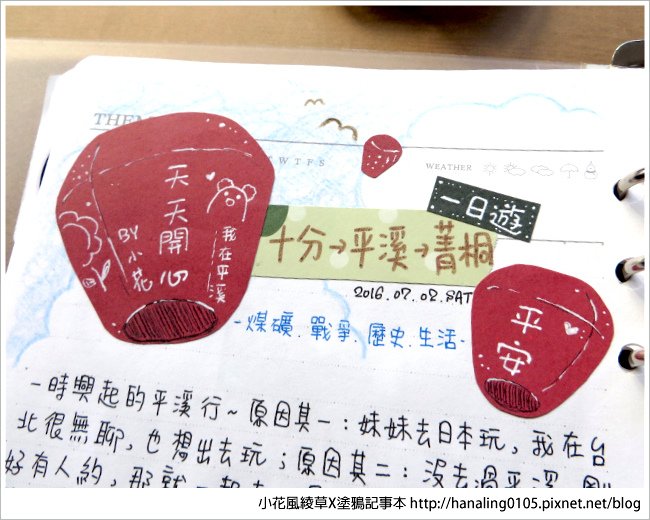 T W T F S
WEATHER
一日遊
天天開心
BY 小花
我在平溪
十分→平溪→菁桐
2016.07.02.SAT
平安
-煤礦.戰爭.歷史.生活-
一時興起的平溪行~原因其一:妹妹去日本玩,我在台
北很無聊,也想出去玩;原因其二:沒去過平溪,剛
好有人約,那就一起去
小花風綾草X塗鴉記事本 http://hanaling0105.pixnet.net/blog